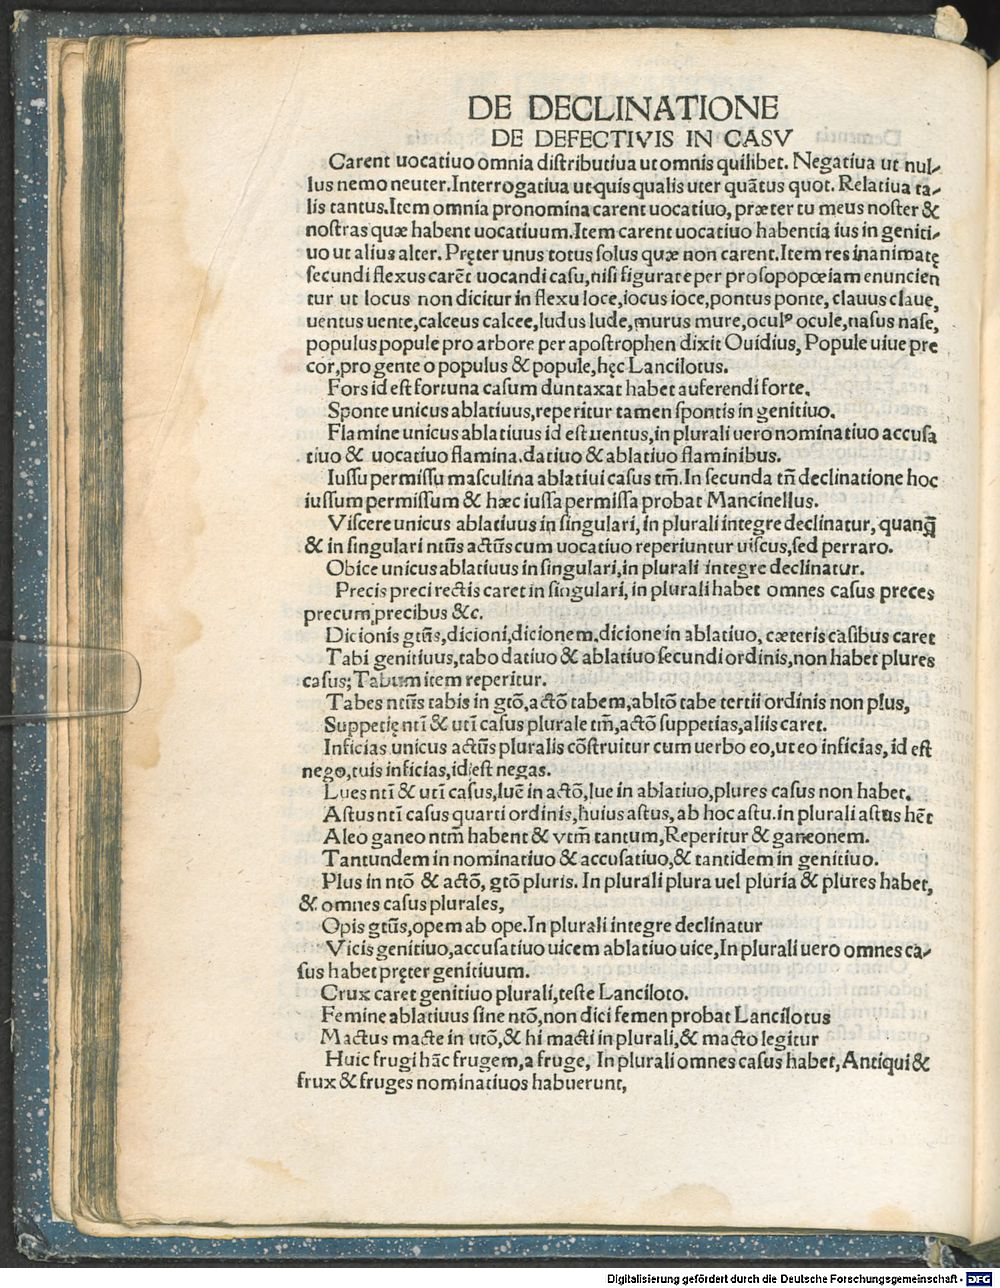 DE DECLINATIONE
DE DEFECTIVIS IN CASV
Carent uocatiuo omnia distributiua ut omnis quilibet. Negatiua ut nul-
lus nemo neuter. Interrogatiua ut quis qualis uter quātus quot. Relatiua ta-
lis tantus. Item omnia pronomina carent uocatiuo, præter tu meus noster &
nostras quæ habent uocatiuum. Item carent uocatiuo habentia ius in geniti-
uo ut alius alter. Pręter unus totus solus quæ non carent. Item res inanimatę
secundi flexus carēt uocandi casu, nisi figurate per prosopopœiam enuncien
tur ut locus non dicitur in flexu loce, iocus ioce, pontus ponte, clauus claue,
uentus uente, calceus calcee, ludus lude, murus mure, oculꝰ ocule, nasus nase,
populus popule pro arbore per apostrophen dixit Ouidius, Popule uiue pre
cor, pro gente o populus & popule, hęc Lancilotus.
Fors id est fortuna casum duntaxat habet auferendi forte.
Sponte unicus ablatiuus, reperitur tamen spontis in genitiuo.
Flamine unicus ablatiuus id est uentus, in plurali uero nominatiuo accusa
tiuo & uocatiuo flamina. datiuo & ablatiuo flaminibus.
Iussu permissu masculina ablatiui casus tm̄. In secunda tn̄ declinatione hoc
iussum permissum & hæc iussa permissa probat Mancinellus.
Viscere unicus ablatiuus in singulari, in plurali integre declinatur, quanq̄
& in singulari ntūs actūs cum uocatiuo reperiuntur uiscus, sed perraro.
Obice unicus ablatiuus in singulari, in plurali integre declinatur.
Precis preci rectis caret in singulari, in plurali habet omnes casus preces
precum, precibus &c.
Dicionis gtūs, dicioni, dicionem. dicione in ablatiuo, cæteris casibus caret
Tabi genitiuus, tabo datiuo & ablatiuo secundi ordinis, non habet plures
casus; Tabum item reperitur.
Tabes ntūs tabis in gtō, actō tabem, abltō tabe tertii ordinis non plus,
Suppetię ntī & utī casus plurale tm̄, actō suppetias, aliis caret.
Inficias unicus actūs pluralis cōstruitur cum uerbo eo, ut eo inficias, id est
nego, tu is inficias, id est negas.
Lues ntī & utī casus, luē in actō, lue in ablatiuo, plures casus non habet.
Astus ntī casus quarti ordinis, huius astus, ab hoc astu. in plurali astus hēt
Aleo ganeo ntm̄ habent & vtm̄ tantum, Reperitur & ganeonem.
Tantundem in nominatiuo & accusatiuo, & tantidem in genitiuo.
Plus in ntō & actō, gtō pluris. In plurali plura uel pluria & plures habet,
& omnes casus plurales,
Opis gtūs, opem ab ope. In plurali integre declinatur
Vicis genitiuo, accusatiuo uicem ablatiuo uice, In plurali uero omnes ca-
sus habet pręter genitiuum.
Crux caret genitiuo plurali, teste Lanciloto.
Femine ablatiuus sine ntō, non dici femen probat Lancilotus
Mactus macte in utō, & hi macti in plurali, & macto legitur
Huic frugi hāc frugem, a fruge, In plurali omnes casus habet, Antiqui &
frux & fruges nominatiuos habuerunt,
Digitalisierung gefördert durch die Deutsche Forschungsgemeinschaft - DFG